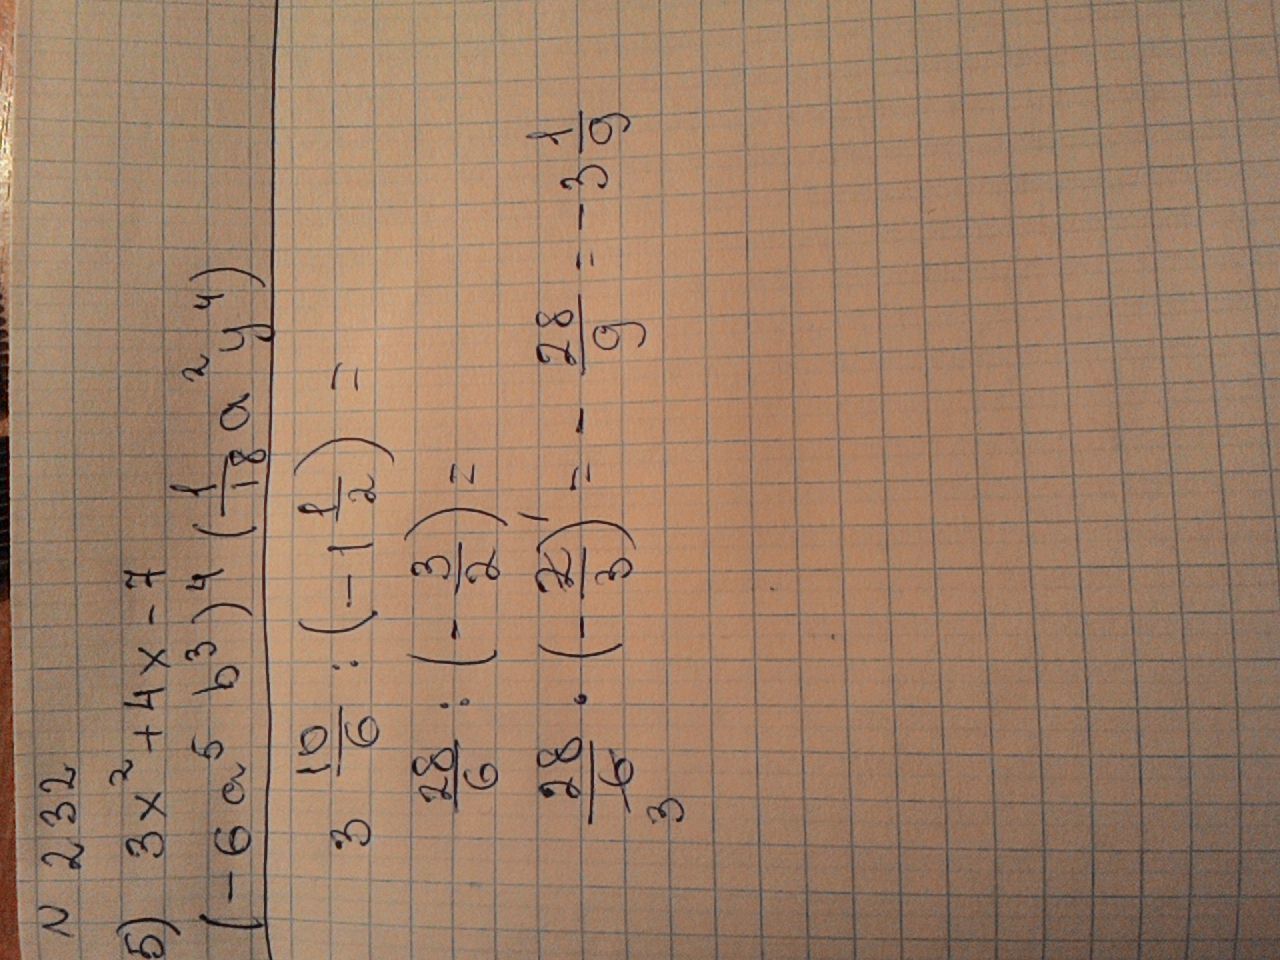 N 232
5) 3x² + 4x - 7
(-6a⁵ b³)4 (1/18 a² y⁴)
3 10/6 : (-1 1/2) =
28/6 : (-3/2) =
28/6 3 · (-2/3) 1 = - 28/9 = -3 1/9